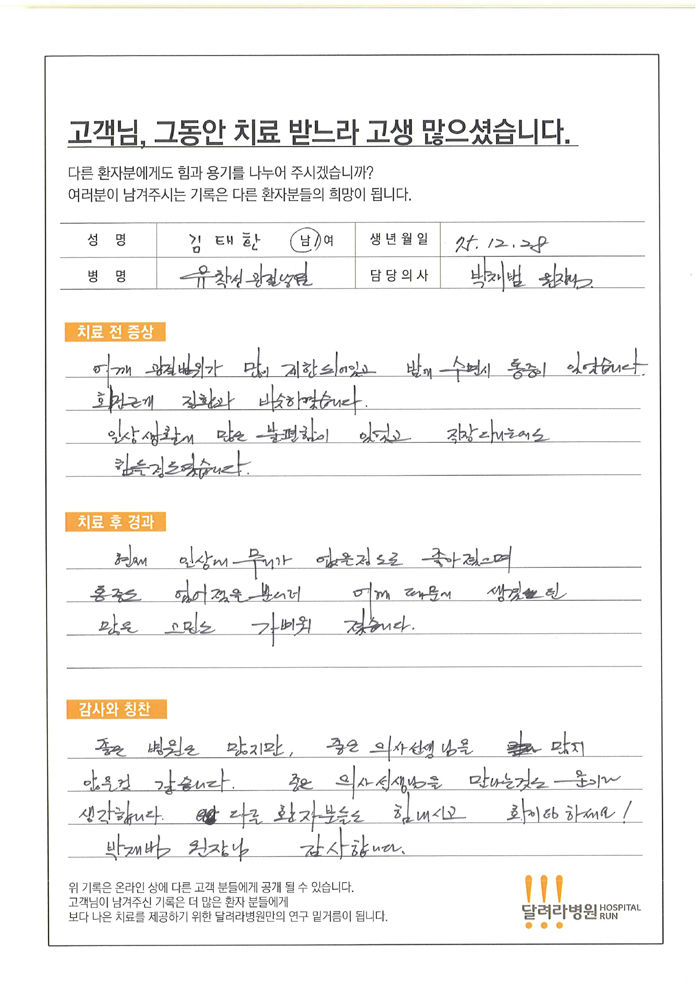 고객님, 그동안 치료 받느라 고생 많으셨습니다.
다른 환자분에게도 힘과 용기를 나누어 주시겠습니까?
여러분이 남겨주시는 기록은 다른 환자분들의 희망이 됩니다.
성 명 김태한 남/여 생년월일 75.12.28
병 명 유착성 관절낭염 담당의사 박재범 원장님.
치료 전 증상
어깨 관절범위가 많이 제한되어있고 밤에 수면시 통증이 있었습니다.
회전근개 질환과 비슷하였습니다.
일상생활에 많은 불편함이 있었고 직장다니는데도
힘들정도였습니다.
치료 후 경과
현재 일상에 무리가 없는정도로 좋아졌으며
통증도 없어졌을 뿐더러 어깨 때문에 생겼던
많은 고민도 가벼워 졌습니다.
감사와 칭찬
좋은 병원은 많지만, 좋은 의사선생님을 많지
않은것 같습니다. 좋은 의사선생님을 만나는것도 운이라
생각합니다. 다른 환자분들도 힘내시고 화이팅하세요!
박재범 원장님 감사합니다.
위 기록은 온라인 상에 다른 고객 분들에게 공개 될 수 있습니다.
고객님이 남겨주신 기록은 더 많은 환자 분들에게
보다 나은 치료를 제공하기 위한 달려라병원만의 연구 밑거름이 됩니다.
!!!
달려라병원 HOSPITAL RUN